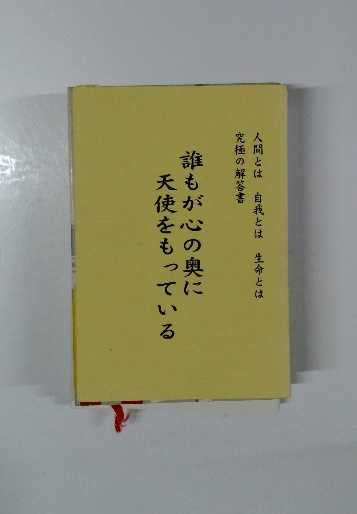 人間とは 自我とは 生命とは
究極の解答書
誰もが心の奥に
天使をもっている